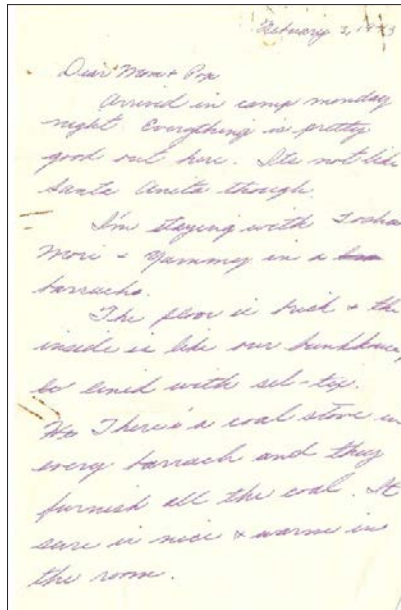 February 3, 1943
Dear Mom + Pop
Arrived in camp monday
night Everything is pretty
good out here. Its not like
Santa Anita though.
I'm staying with Toshio
Mori + Yammy in a
barracks.
The floor is brick + the
inside is like our bunkhouse,
lined with sel-tex.
There's a coal stove in
every barrack and they
furnish all the coal. It
sure is nice & warm in
the room.